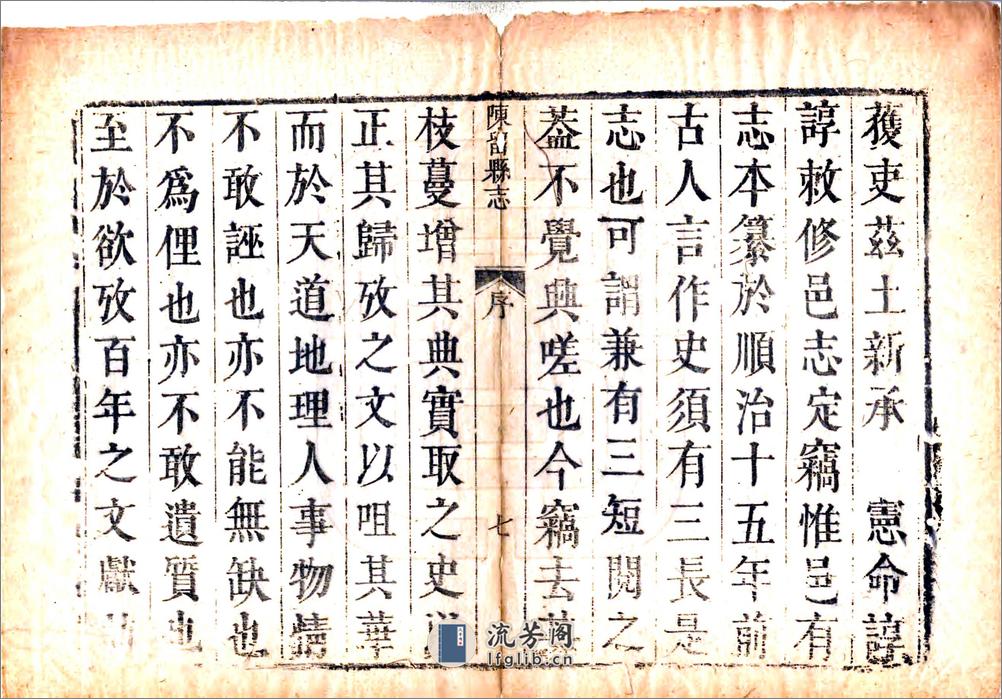 獲吏茲土新承　憲命諄
諄敕修邑志定竊惟邑有
志本纂於順治十五年前
古人言作史須有三長是
志也可謂兼有三短閱之
葢不覺典嗟也今竊去其
陳留縣志　序　七
枝蔓增其典實取之史
正其歸攷之文以咀其華
而於天道地理人事物情
不敢誣也亦不能無缺也
不爲俚也亦不敢遺質也
至於欲攷百年之文獻
流芳阁
lfglib.cn